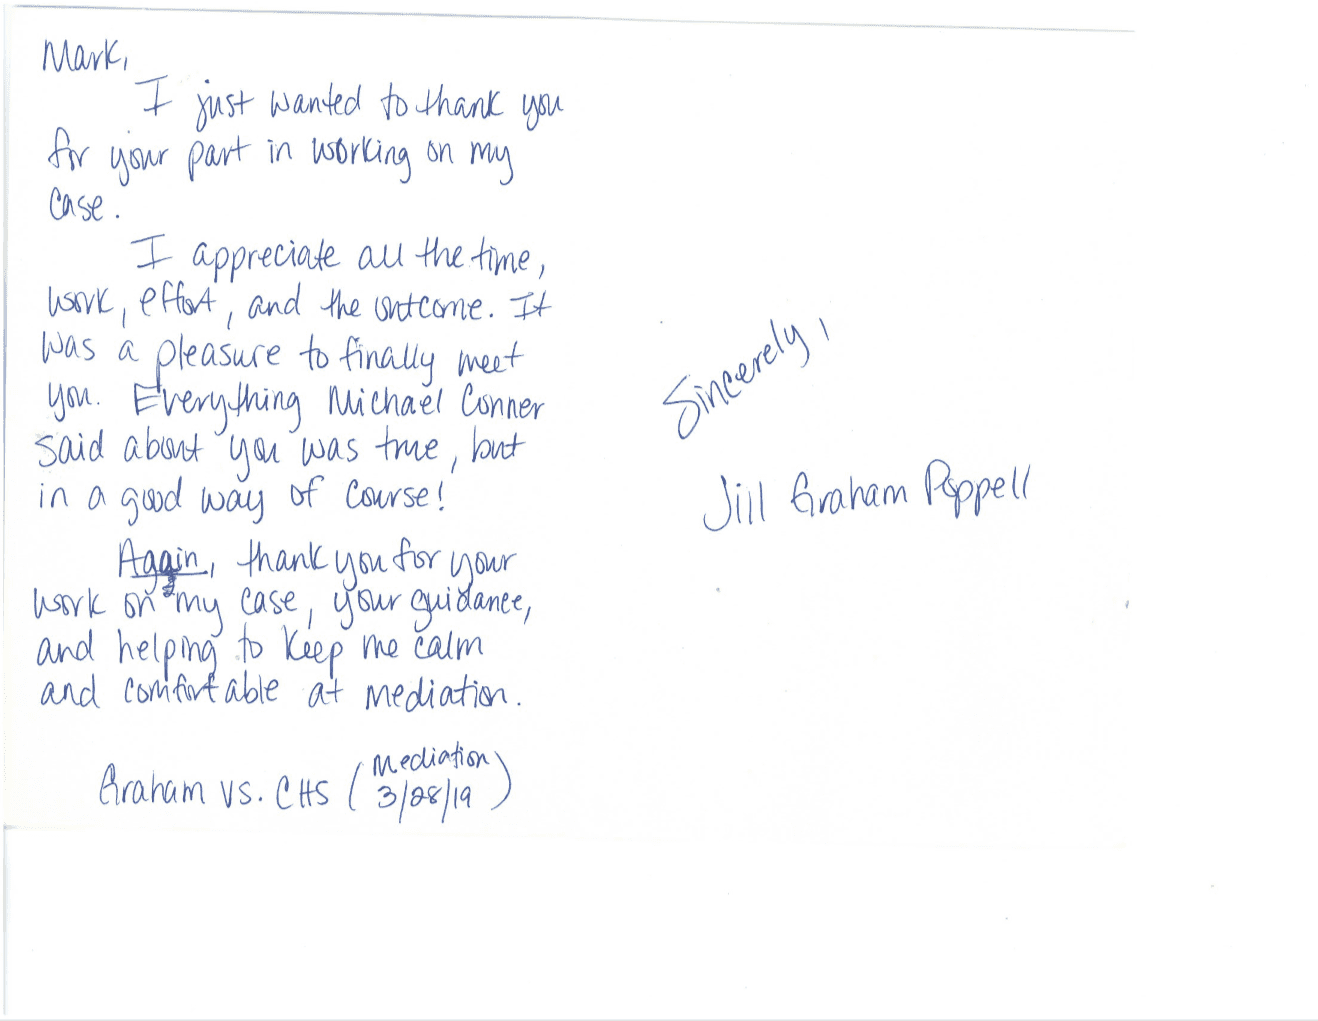 Mark,
I just wanted to thank you
for your part in working on my
case.
I appreciate all the time,
work, effort, and the outcome. It
was a pleasure to finally meet
you. Everything Michael Conner
said about you was true, but
in a good way of course!
Again, thank you for your
work on my case, your guidance,
and helping to keep me calm
and comfortable at mediation.
Graham vs. CHS (Mediation
3/28/19)
Sincerely,
Jill Graham Poppell